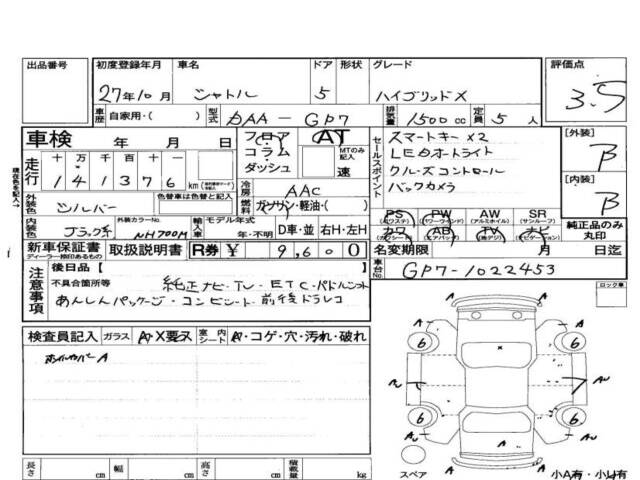 出品番号 初度登録年月 車名 ドア 形状 グレード 評価点
27年10月 シャトル 5 ハイブリッドX 3.5
車歴 自家用・( ) 型式 DAA-GP7 排気量 1500cc 定員 5人
車検 年 月 日 フロア AT スマートキー×2 [外装]
走行 十 万 千 百 十 一 コラム MTのみ記入 セールスポイント LEDオートライト B
1 4 1 3 7 6 km ダッシュ 速 クルーズコントロール [内装]
外装色 シルバー 色替車は色替と記入 冷房 AAC バックカメラ B
燃料 ガソリン・軽油・( )
内装色 ブラック系 外装カラーNo. NH700M 輸入車 モデル年式 年・不明 D車・並 右H・左H
PS PW AW SR 純正品のみ丸印
(パワステ) (パワーウィンド) (アルミホイル) (サンルーフ)
カワ AB TV ナビ
新車保証書 取扱説明書 R券 ¥ 9,600 名変期限 月 日迄
ディーラー捺印あるもの
現在色を記入→
車台No. GP7-1022453
注意事項 後日品 [
不具合箇所等 純正ナビ・TV・ETC・パドルシフト
あんしんパッケージ・コンビシート・前後ドラレコ
ロック車
検査員記入 ガラス A・X要又 室内シート A・コゲ・穴・汚れ・破れ
ホイルカバーA
6 6
A A
6 6
長さ cm 幅 cm 高さ cm 積載量 kg スペア 小A有・小U有